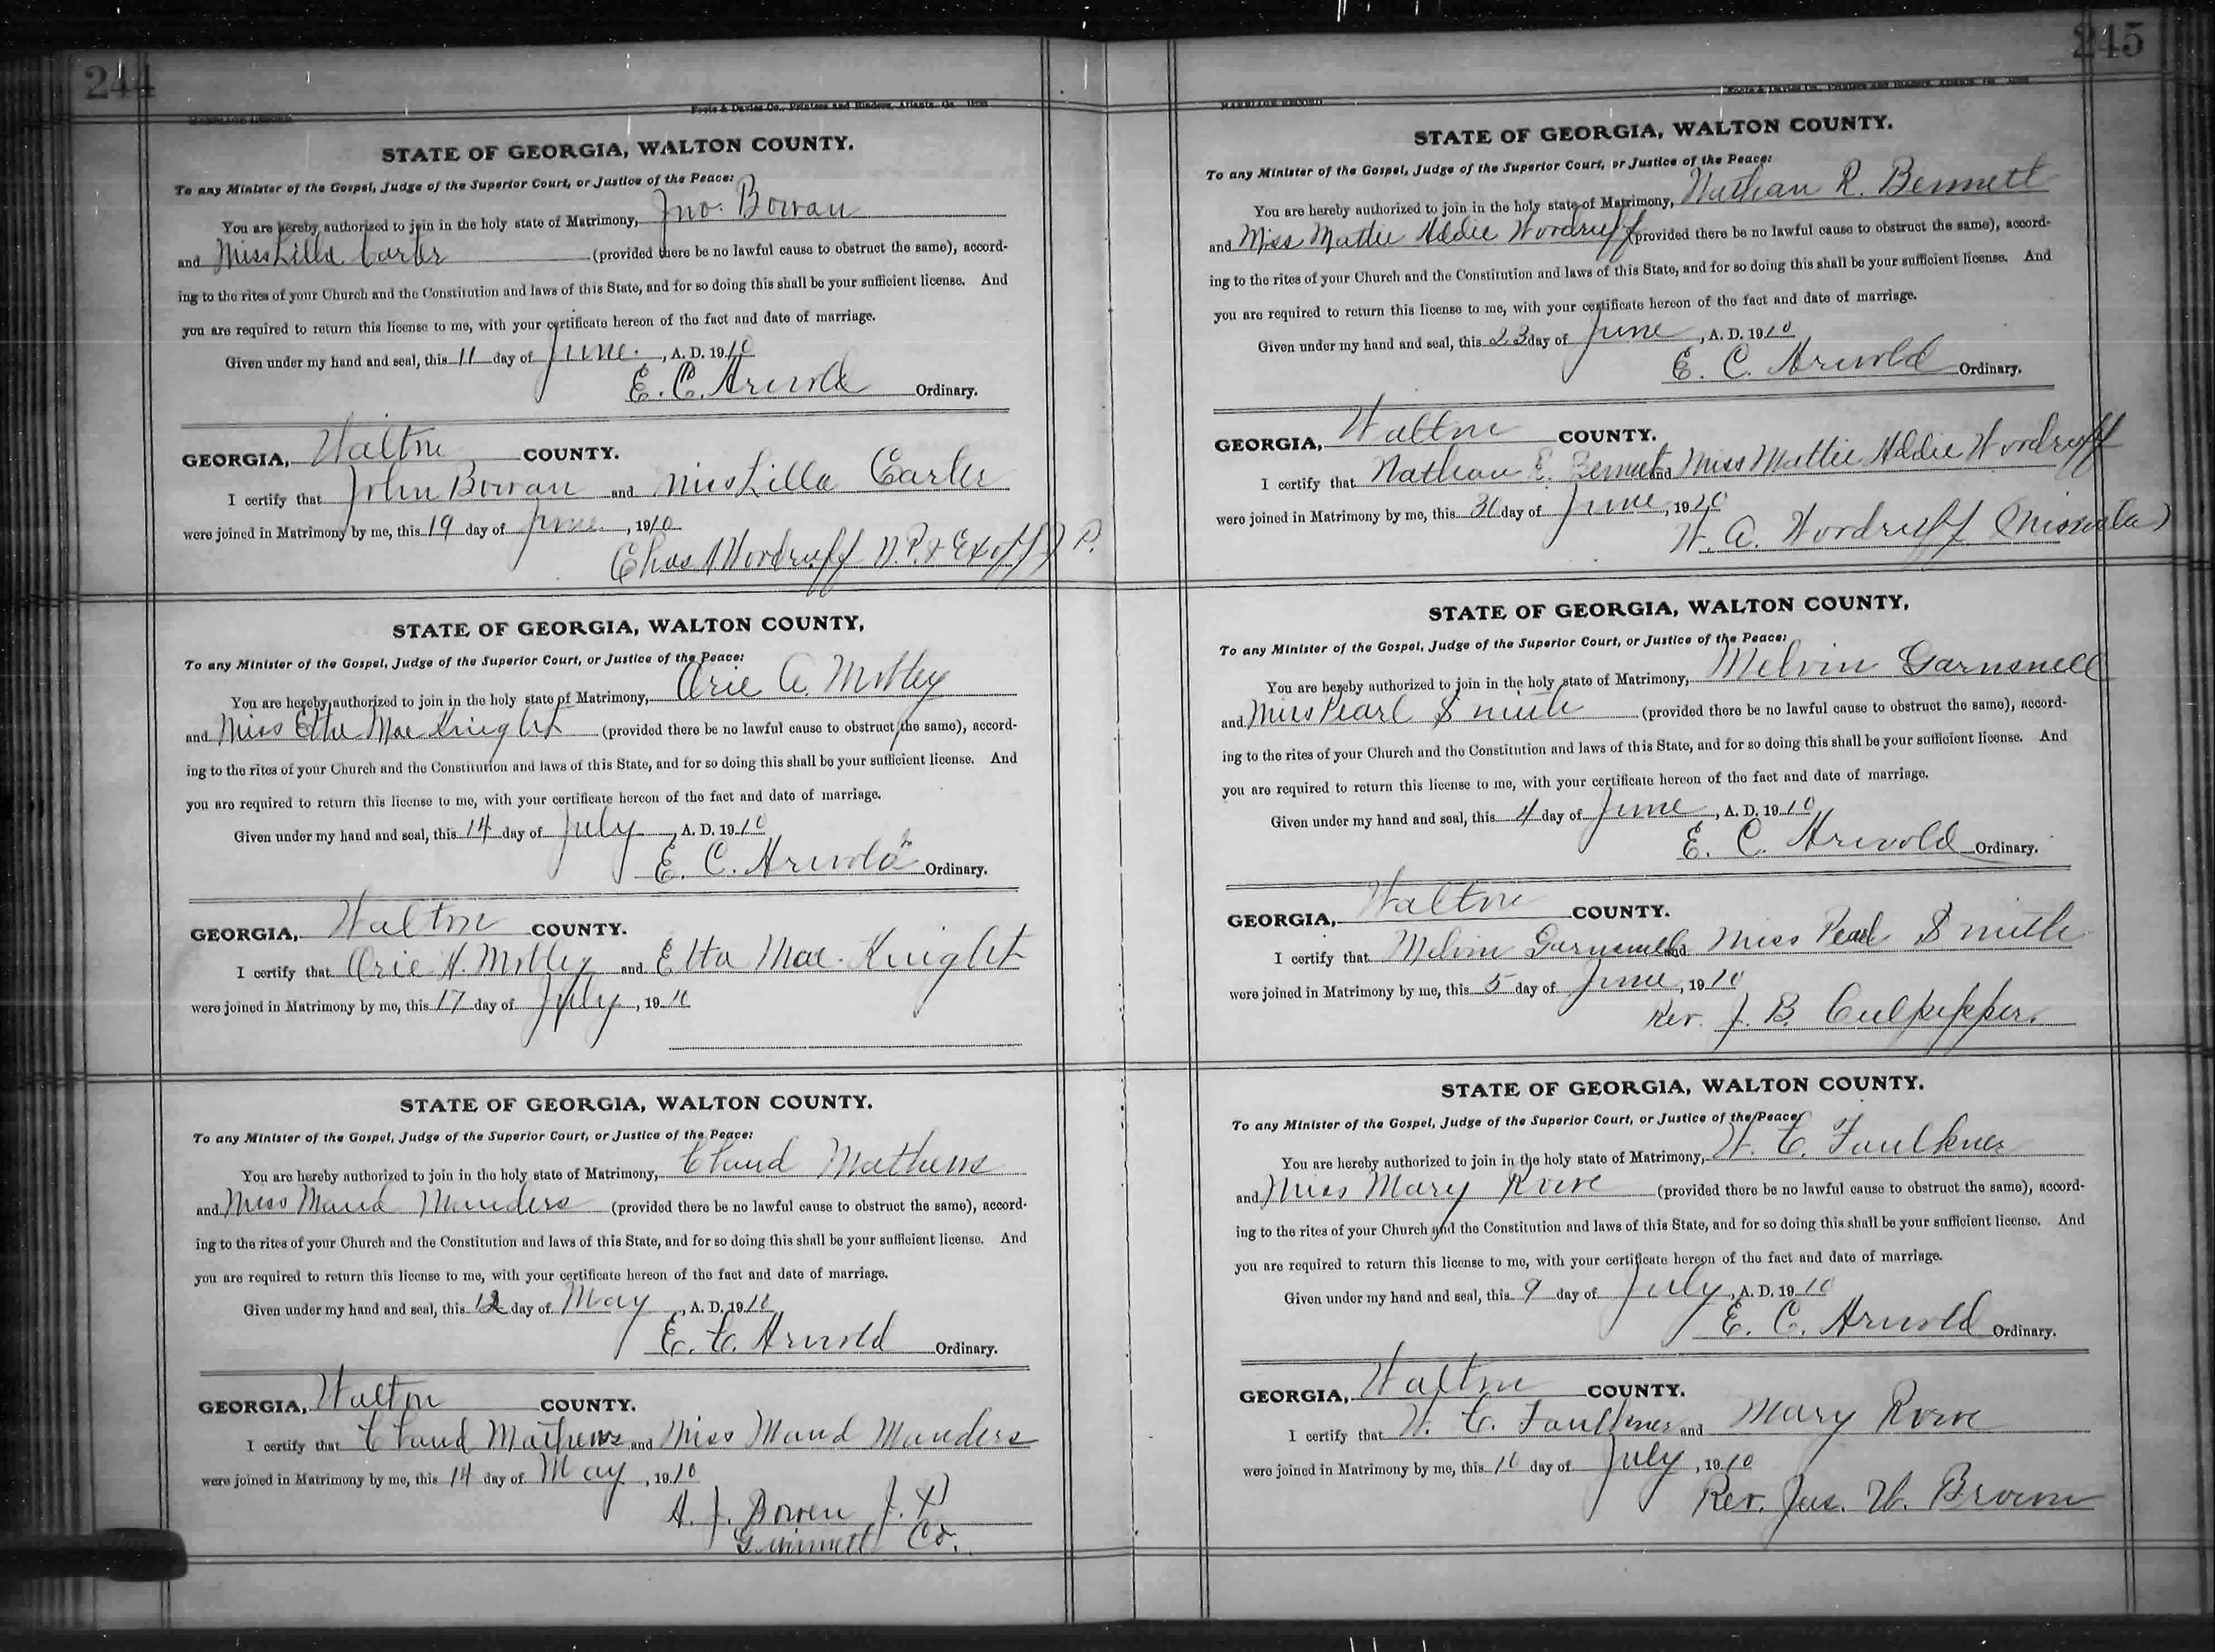 244
MARRIAGE RECORD
Foote & Davies Co., Printers and Binders, Atlanta, Ga.
STATE OF GEORGIA, WALTON COUNTY.
To any Minister of the Gospel, Judge of the Superior Court, or Justice of the Peace:
You are hereby authorized to join in the holy state of Matrimony, Jno. Bowan
and Miss Lilla Carter (provided there be no lawful cause to obstruct the same), accord-
ing to the rites of your Church and the Constitution and laws of this State, and for so doing this shall be your sufficient license. And
you are required to return this license to me, with your certificate hereon of the fact and date of marriage.
Given under my hand and seal, this 11 day of June, A. D. 1910
E. C. Arnold Ordinary.
GEORGIA, Walton COUNTY.
I certify that John Bowan and Miss Lilla Carter
were joined in Matrimony by me, this 19 day of June, 1910
Chas A Woodruff N. P. & Ex off J P.
STATE OF GEORGIA, WALTON COUNTY,
To any Minister of the Gospel, Judge of the Superior Court, or Justice of the Peace:
You are hereby authorized to join in the holy state of Matrimony, Orie A. Mobley
and Miss Etta Mae Knight (provided there be no lawful cause to obstruct the same), accord-
ing to the rites of your Church and the Constitution and laws of this State, and for so doing this shall be your sufficient license. And
you are required to return this license to me, with your certificate hereon of the fact and date of marriage.
Given under my hand and seal, this 14 day of July, A. D. 1910
E. C. Arnold Ordinary.
GEORGIA, Walton COUNTY.
I certify that Orie A. Mobley and Etta Mae. Knight
were joined in Matrimony by me, this 17 day of July, 1910
STATE OF GEORGIA, WALTON COUNTY.
To any Minister of the Gospel, Judge of the Superior Court, or Justice of the Peace:
You are hereby authorized to join in the holy state of Matrimony, Claud Mathews
and Miss Maud Maunders (provided there be no lawful cause to obstruct the same), accord-
ing to the rites of your Church and the Constitution and laws of this State, and for so doing this shall be your sufficient license. And
you are required to return this license to me, with your certificate hereon of the fact and date of marriage.
Given under my hand and seal, this 12 day of May, A. D. 1910
E. C. Arnold Ordinary.
GEORGIA, Walton COUNTY.
I certify that Claud Mathews and Miss Maud Maunders
were joined in Matrimony by me, this 14 day of May, 1910
A. J. Bowen J. P
Gwinnett Co.
245
MARRIAGE RECORD
Foote & Davies Co., Printers and Binders, Atlanta, Ga.
STATE OF GEORGIA, WALTON COUNTY.
To any Minister of the Gospel, Judge of the Superior Court, or Justice of the Peace:
You are hereby authorized to join in the holy state of Matrimony, Nathan R. Bennett
and Miss Mattie Addie Woodruff (provided there be no lawful cause to obstruct the same), accord-
ing to the rites of your Church and the Constitution and laws of this State, and for so doing this shall be your sufficient license. And
you are required to return this license to me, with your certificate hereon of the fact and date of marriage.
Given under my hand and seal, this 23 day of June, A. D. 1910
E. C. Arnold Ordinary.
GEORGIA, Walton COUNTY.
I certify that Nathan Bennet and Miss Mattie Addie Woodruff
were joined in Matrimony by me, this 30 day of June, 1910
W. A. Woodruff (Minister)
STATE OF GEORGIA, WALTON COUNTY,
To any Minister of the Gospel, Judge of the Superior Court, or Justice of the Peace:
You are hereby authorized to join in the holy state of Matrimony, Melvin
and Miss Pearl Smith (provided there be no lawful cause to obstruct the same), accord-
ing to the rites of your Church and the Constitution and laws of this State, and for so doing this shall be your sufficient license. And
you are required to return this license to me, with your certificate hereon of the fact and date of marriage.
Given under my hand and seal, this 4 day of June, A. D. 1910
E. C. Arnold Ordinary.
GEORGIA, Walton COUNTY.
I certify that Melvin and Miss Pearl Smith
were joined in Matrimony by me, this 5 day of June, 1910
Rev. J. B. Culpepper.
STATE OF GEORGIA, WALTON COUNTY.
To any Minister of the Gospel, Judge of the Superior Court, or Justice of the Peace:
You are hereby authorized to join in the holy state of Matrimony, W. C. Faulkner
and Miss Mary Rowe (provided there be no lawful cause to obstruct the same), accord-
ing to the rites of your Church and the Constitution and laws of this State, and for so doing this shall be your sufficient license. And
you are required to return this license to me, with your certificate hereon of the fact and date of marriage.
Given under my hand and seal, this 9 day of July, A. D. 1910
E. C. Arnold Ordinary.
GEORGIA, Walton COUNTY.
I certify that W. C. Faulkner and Mary Rowe
were joined in Matrimony by me, this 10 day of July, 1910
Rev. Jas. W. Brown